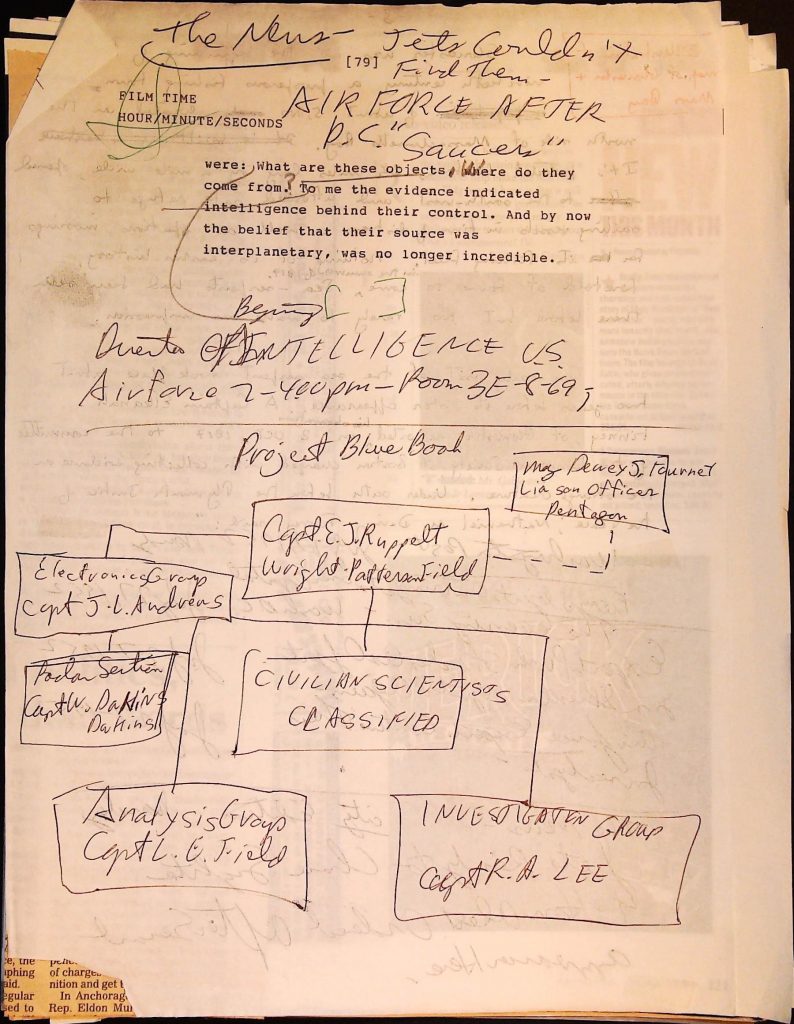 The News- Jets Couldn't
[79]
Find Them-
FILM TIME
HOUR/MINUTE/SECONDS
AIR FORCE AFTER
D.C." Saucers"
were: What are these objects, Where do they
come from.? To me the evidence indicated
intelligence behind their control. And by now
the belief that their source was
interplanetary, was no longer incredible.
OF INTELLIGENCE US
Airforce 2-400pm-Room 3E-8-69;
Project Blue Book
Maj Dewey J. Fournet
Liason Officer
Pentagon
Capt. E.J. Ruppelt
Wright-Patterson Field
Electronics Group
Capt J.L. Andrews
Radar Section
Capt W. DaKins
DaKins
CIVILIAN SCIENTISTS
CLASSIFIED
Analysis Group
Capt L. E. Field
INVESTIGATEN GROUP
Capt R.A. LEE
ce, the
aphing
aid.
egular
sed to
of charges
nition and get t
In Anchorag
Rep. Eldon Mul